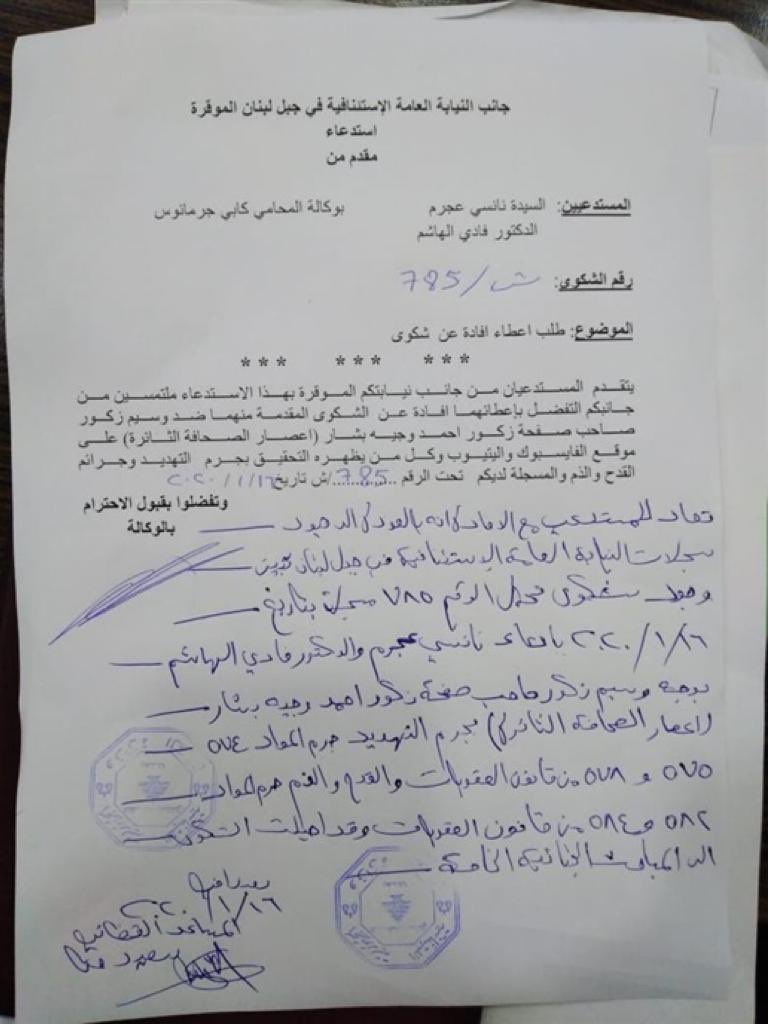 جانب النيابة العامة الإستئنافية في جبل لبنان الموقرة
استدعاء
مقدم من
المستدعيين: السيدة نانسي عجرم بوكالة المحامي كابي جرمانوس
الدكتور فادي الهاشم
رقم الشكوى: 785/ش
الموضوع: طلب اعطاء افادة عن شكوى
*** *** ***
يتقدم المستدعيان من جانب نيابتكم الموقرة بهذا الاستدعاء ملتمسين من
جانبكم التفضل بإعطائهما افادة عن الشكوى المقدمة منهما ضد وسيم زكور
صاحب صفحة زكور احمد وجيه بشار (اعصار الصحافة الثائرة) على
موقع الفايسبوك واليتيوب وكل من يظهره التحقيق بجرم التهديد وجرائم
القدح والذم والمسجلة لديكم تحت الرقم 785/ش تاريخ ٢٠٢٠/١/١٦
وتفضلوا بقبول الاحترام
بالوكالة
تفاد للمستدعي مع الافادة انه بالعودة الى
سجلات النيابة العامة الاستئنافية في جبل لبنان تبين
وجود شكوى تحمل الرقم ٧٨٥ مسجلة بتاريخ
٢٠٢٠/١/١٦ بادعاء نانسي عجرم والدكتور فادي الهاشم
بوجه وسيم زكور صاحب صفحة زكور احمد وجيه بشار
(اعصار الصحافة الثائرة) بجرم التهديد جرم المواد ٥٧٤
٥٧٥ و ٥٧٨ من قانون العقوبات والقدح والذم جرم المواد
٥٨٢ و ٥٨٤ من قانون العقوبات وقد احيلت الشكوى
الى المباحث الجنائية الخاصة
بعبدا في
٢٠٢٠/١/١٦
المساعد القضائي